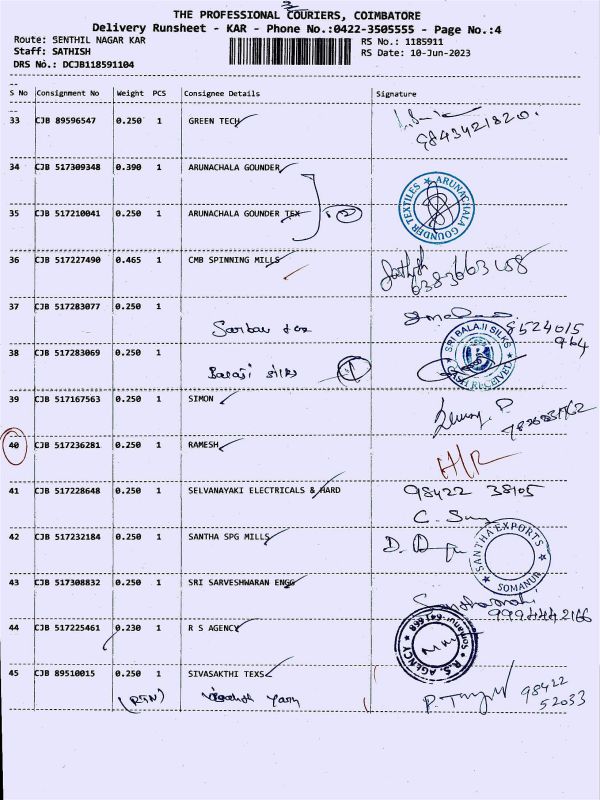 THE PROFESSIONAL COURIERS, COIMBATORE
Delivery Runsheet - KAR - Phone No.:0422-3505555 - Page No.:4
Route: SENTHIL NAGAR KAR
RS No.: 1185911
Staff: SATHISH
RS Date: 10-Jun-2023
DRS No.: DCJB118591104
S No Consignment No Weight PCS Consignee Details Signature
33 CJB 89596547 0.250 1 GREEN TECH
9843421820.
34 CJB 517309348 0.390 1 ARUNACHALA GOUNDER
35 CJB 517210041 0.250 1 ARUNACHALA GOUNDER TEX
2
ARUNACHALA GOUNDER TEXTILES
36 CJB 517227490 0.465 1 CMB SPINNING MILLS
Sathish
37 CJB 517283077 0.250 1
8524015
964
38 CJB 517283069 0.250 1
Balaji silks
SRI BALAJI SILKS
RECEIVED
39 CJB 517167563 0.250 1 SIMON
40 CJB 517236281 0.250 1 RAMESH
41 CJB 517228648 0.250 1 SELVANAYAKI ELECTRICALS & HARD
98422 38105
42 CJB 517232184 0.250 1 SANTHA SPG MILLS
SANTHA EXPORTS
SOMANUR
43 CJB 517308832 0.250 1 SRI SARVESHWARAN ENGG
9994442166
44 CJB 517225461 0.230 1 R S AGENCY
R.S. AGENCY
Somanur-641 668
45 CJB 89510015 0.250 1 SIVASAKTHI TEXS
98422
52033